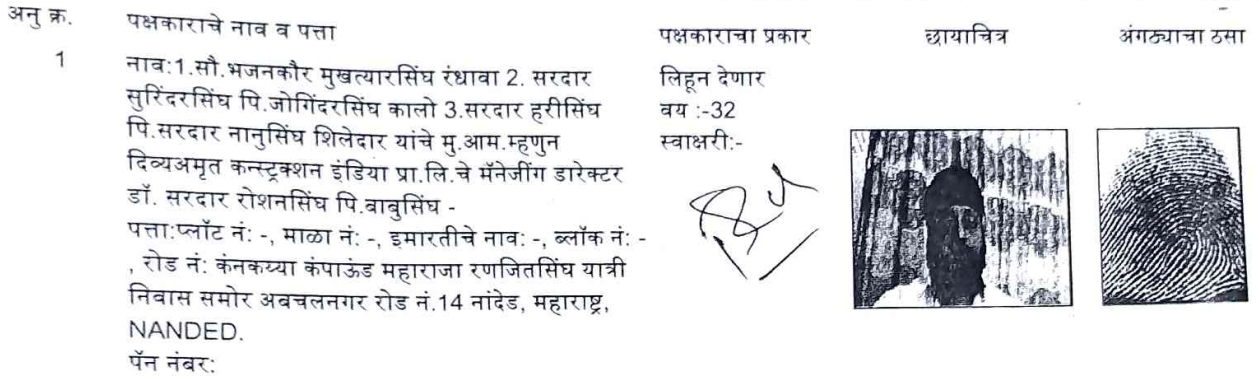 अनु क्र. पक्षकाराचे नाव व पत्ता पक्षकाराचा प्रकार छायाचित्र अंगठ्याचा ठसा
1 नाव:1.सौ.भजनकौर मुखत्यारसिंघ रंधावा 2. सरदार
सुरिंदरसिंघ पि.जोगिंदरसिंघ कालो 3.सरदार हरीसिंघ
पि.सरदार नानुसिंघ शिलेदार यांचे मु.आम.म्हणुन
दिव्यअमृत कन्स्ट्रक्शन इंडिया प्रा.लि.चे मॅनेजींग डारेक्टर
डॉ. सरदार रोशनसिंघ पि.वाबुसिंघ -
पत्ता:प्लॉट नं: -, माळा नं: -, इमारतीचे नाव: -, ब्लॉक नं: -
, रोड नं: कंनकय्या कंपाऊंड महाराजा रणजितसिंघ यात्री
निवास समोर अबचलनगर रोड नं.14 नांदेड, महाराष्ट्र,
NANDED.
पॅन नंबर:
लिहून देणार
वय :-32
स्वाक्षरी:-